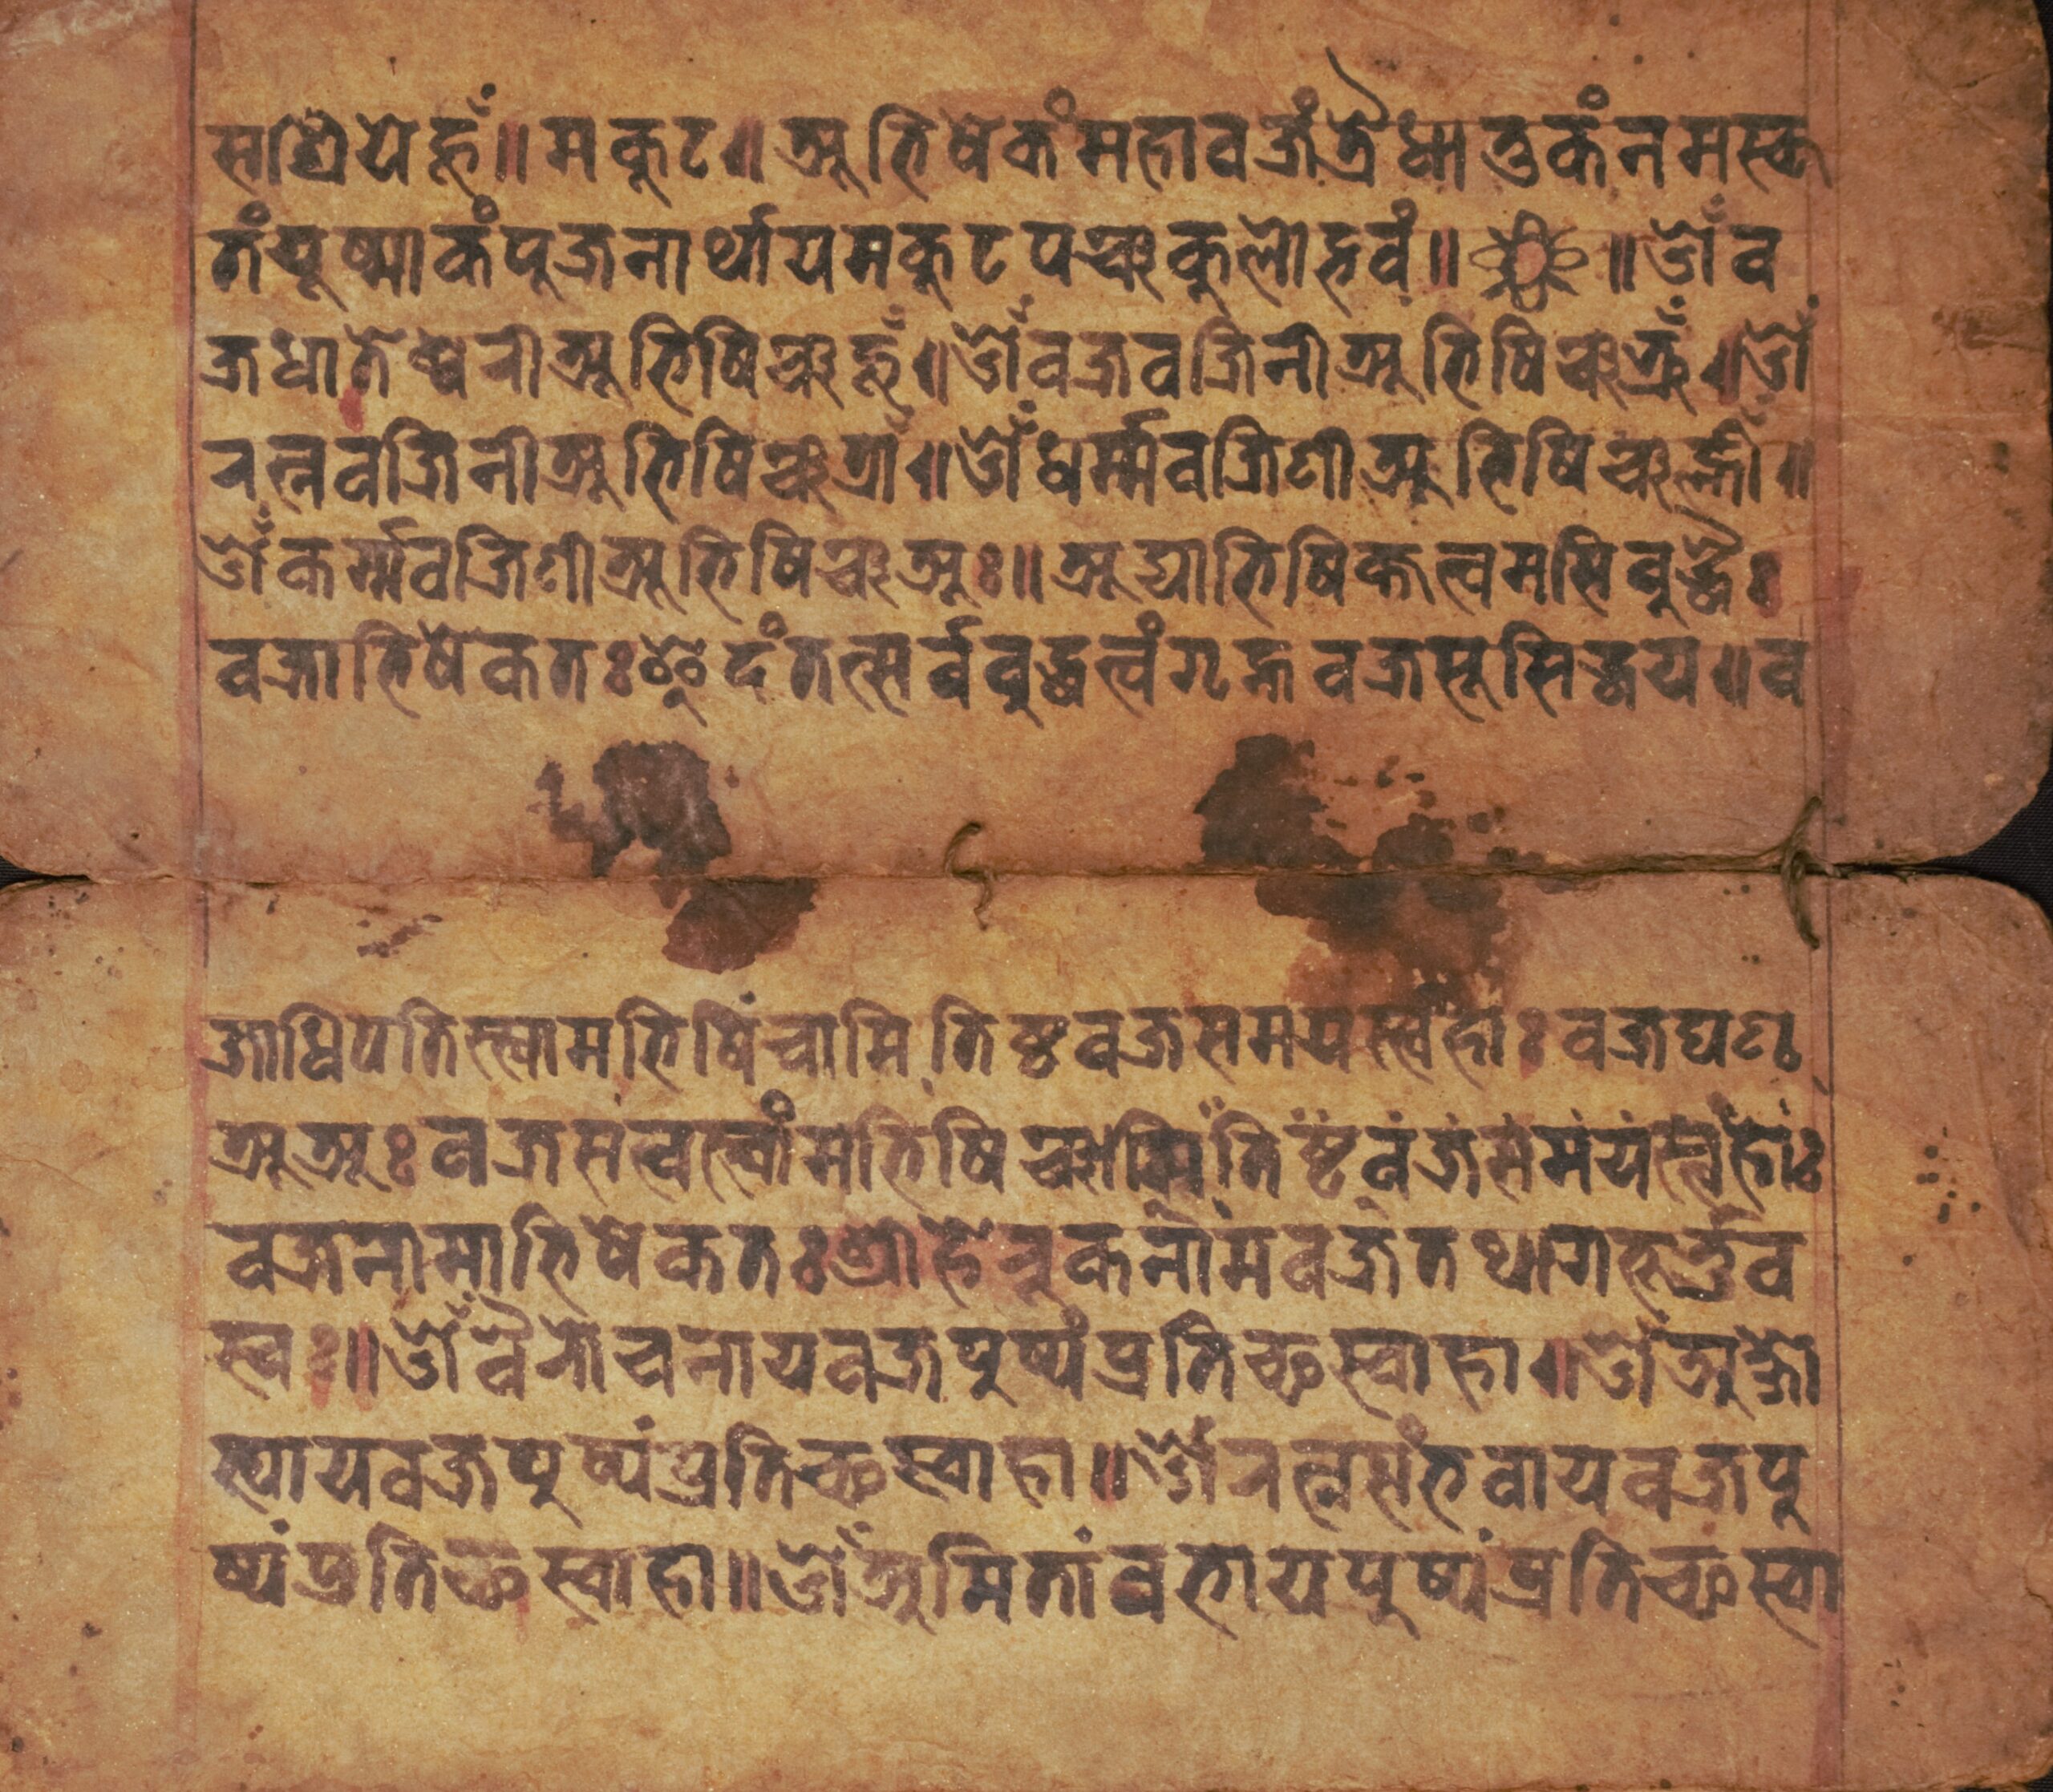 सश्रियेहूँ॥मकुट॥अभिषेकंमहावज्रंत्रैधातुकंनमस्कृ
तंयूष्माकंपूजनार्थायमकुटपञ्चकुलोद्भवं॥ ॥ओँव
ज्रधातेश्वरीअभिषिञ्चहूँ॥ओँवज्रवज्रिनीअभिषिञ्चह्रूँ॥ओँ
रत्नवज्रिनीअभिषिञ्चत्राँ॥ओँधर्म्मवज्रिणीअभिषिञ्चह्रीँ॥
ओँकर्म्मवज्रिणीअभिषिञ्चअः॥अद्याभिषिक्तत्वमसिबुद्धैः
वज्राभिषेकतःइदंतत्सर्वबुद्धत्वंगृह्नवज्रसूसिद्धय॥व
ज्राधिपतिस्त्वामभिषिंचामितिष्टवज्रसमयस्त्वहोःवज्रघण्ट
अअःवज्रसत्वस्त्वांमभिषिञ्चामितिष्टवज्रसमयस्त्वहोः
वज्रनामाभिषेकतःश्रीहेरूकनामवज्रतथागतभूर्भुव
स्वः॥ओँवैरोचनायवज्रपुष्पंप्रतिच्छस्वाहा॥ओँअक्षो
भ्यायवज्रपुष्पंप्रतिच्छस्वाहा॥ओँरत्नसंभवायवज्रपु
ष्पंप्रतिच्छस्वाहा॥ओँअमितांवभायपुष्पंप्रतिच्छस्वा